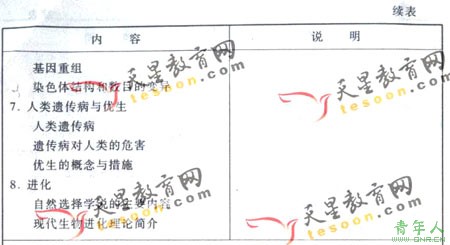 续表
内 容 说 明
基因重组
染色体结构和数目的变异
7. 人类遗传病与优生
人类遗传病
遗传病对人类的危害
优生的概念与措施
8. 进化
自然选择学说的主要内容
现代生物进化理论简介
天星教育网
tesoon.com
天星教育网
tesoon.com
天星教育网
tesoon.com
天星教育网
tesoon.com
青年人
WWW.QNR.CN